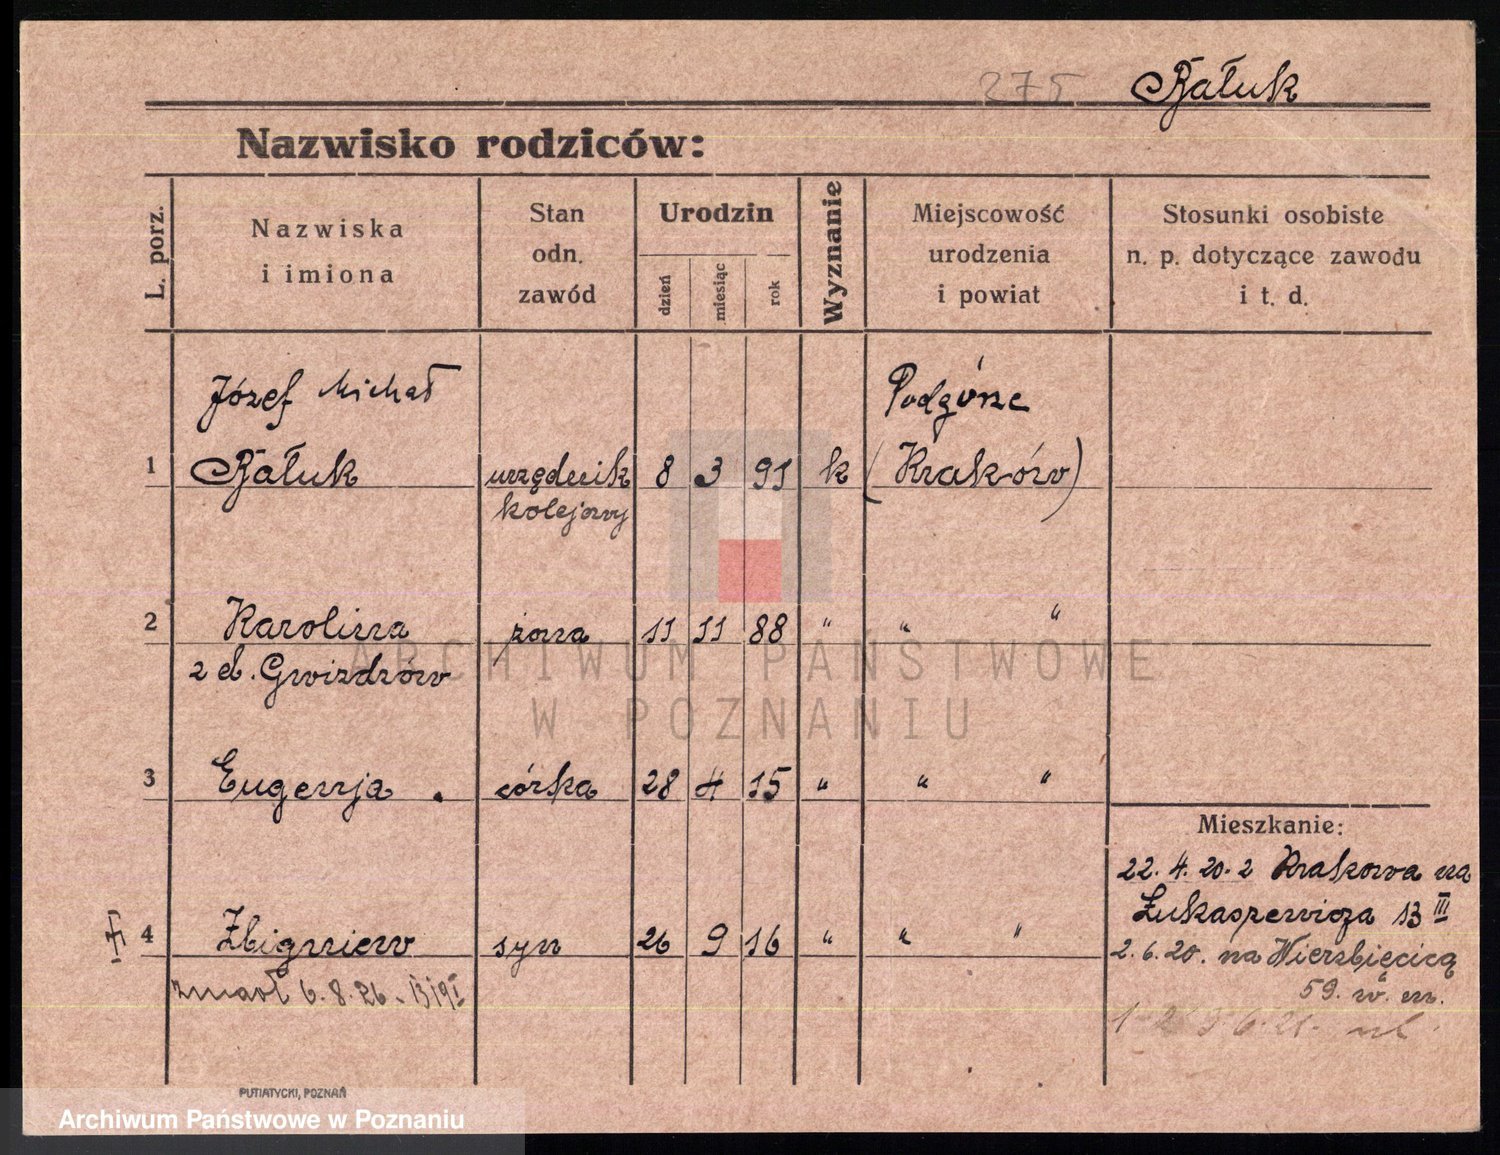 275 Bałuk
Nazwisko rodziców:
L. porz.
Nazwiska
i imiona
Stan
odn.
zawód
Urodzin
dzień
miesiąc
rok
Wyznanie
Miejscowość
urodzenia
i powiat
Stosunki osobiste
n. p. dotyczące zawodu
i t. d.
Józef Michał Podgórze
1 Bałuk urzędnik 8 3 91 k (Kraków)
kolejowy
2 Karolina żona 11 11 88 " " "
z d. Gwizdzów
3 Eugenja córka 28 4 15 " " "
Mieszkanie:
22. 4. 20. z Krakowa na
Łukaszewicza 13 III
4 Zbigniew syn 26 9 16 " " "
2. 6. 20. na Wierzbięcicą
zmarł 6. 8. 26.
59. w. m.
PUTIATYCKI, POZNAŃ
ARCHIWUM PAŃSTWOWE
W POZNANIU
Archiwum Państwowe w Poznaniu